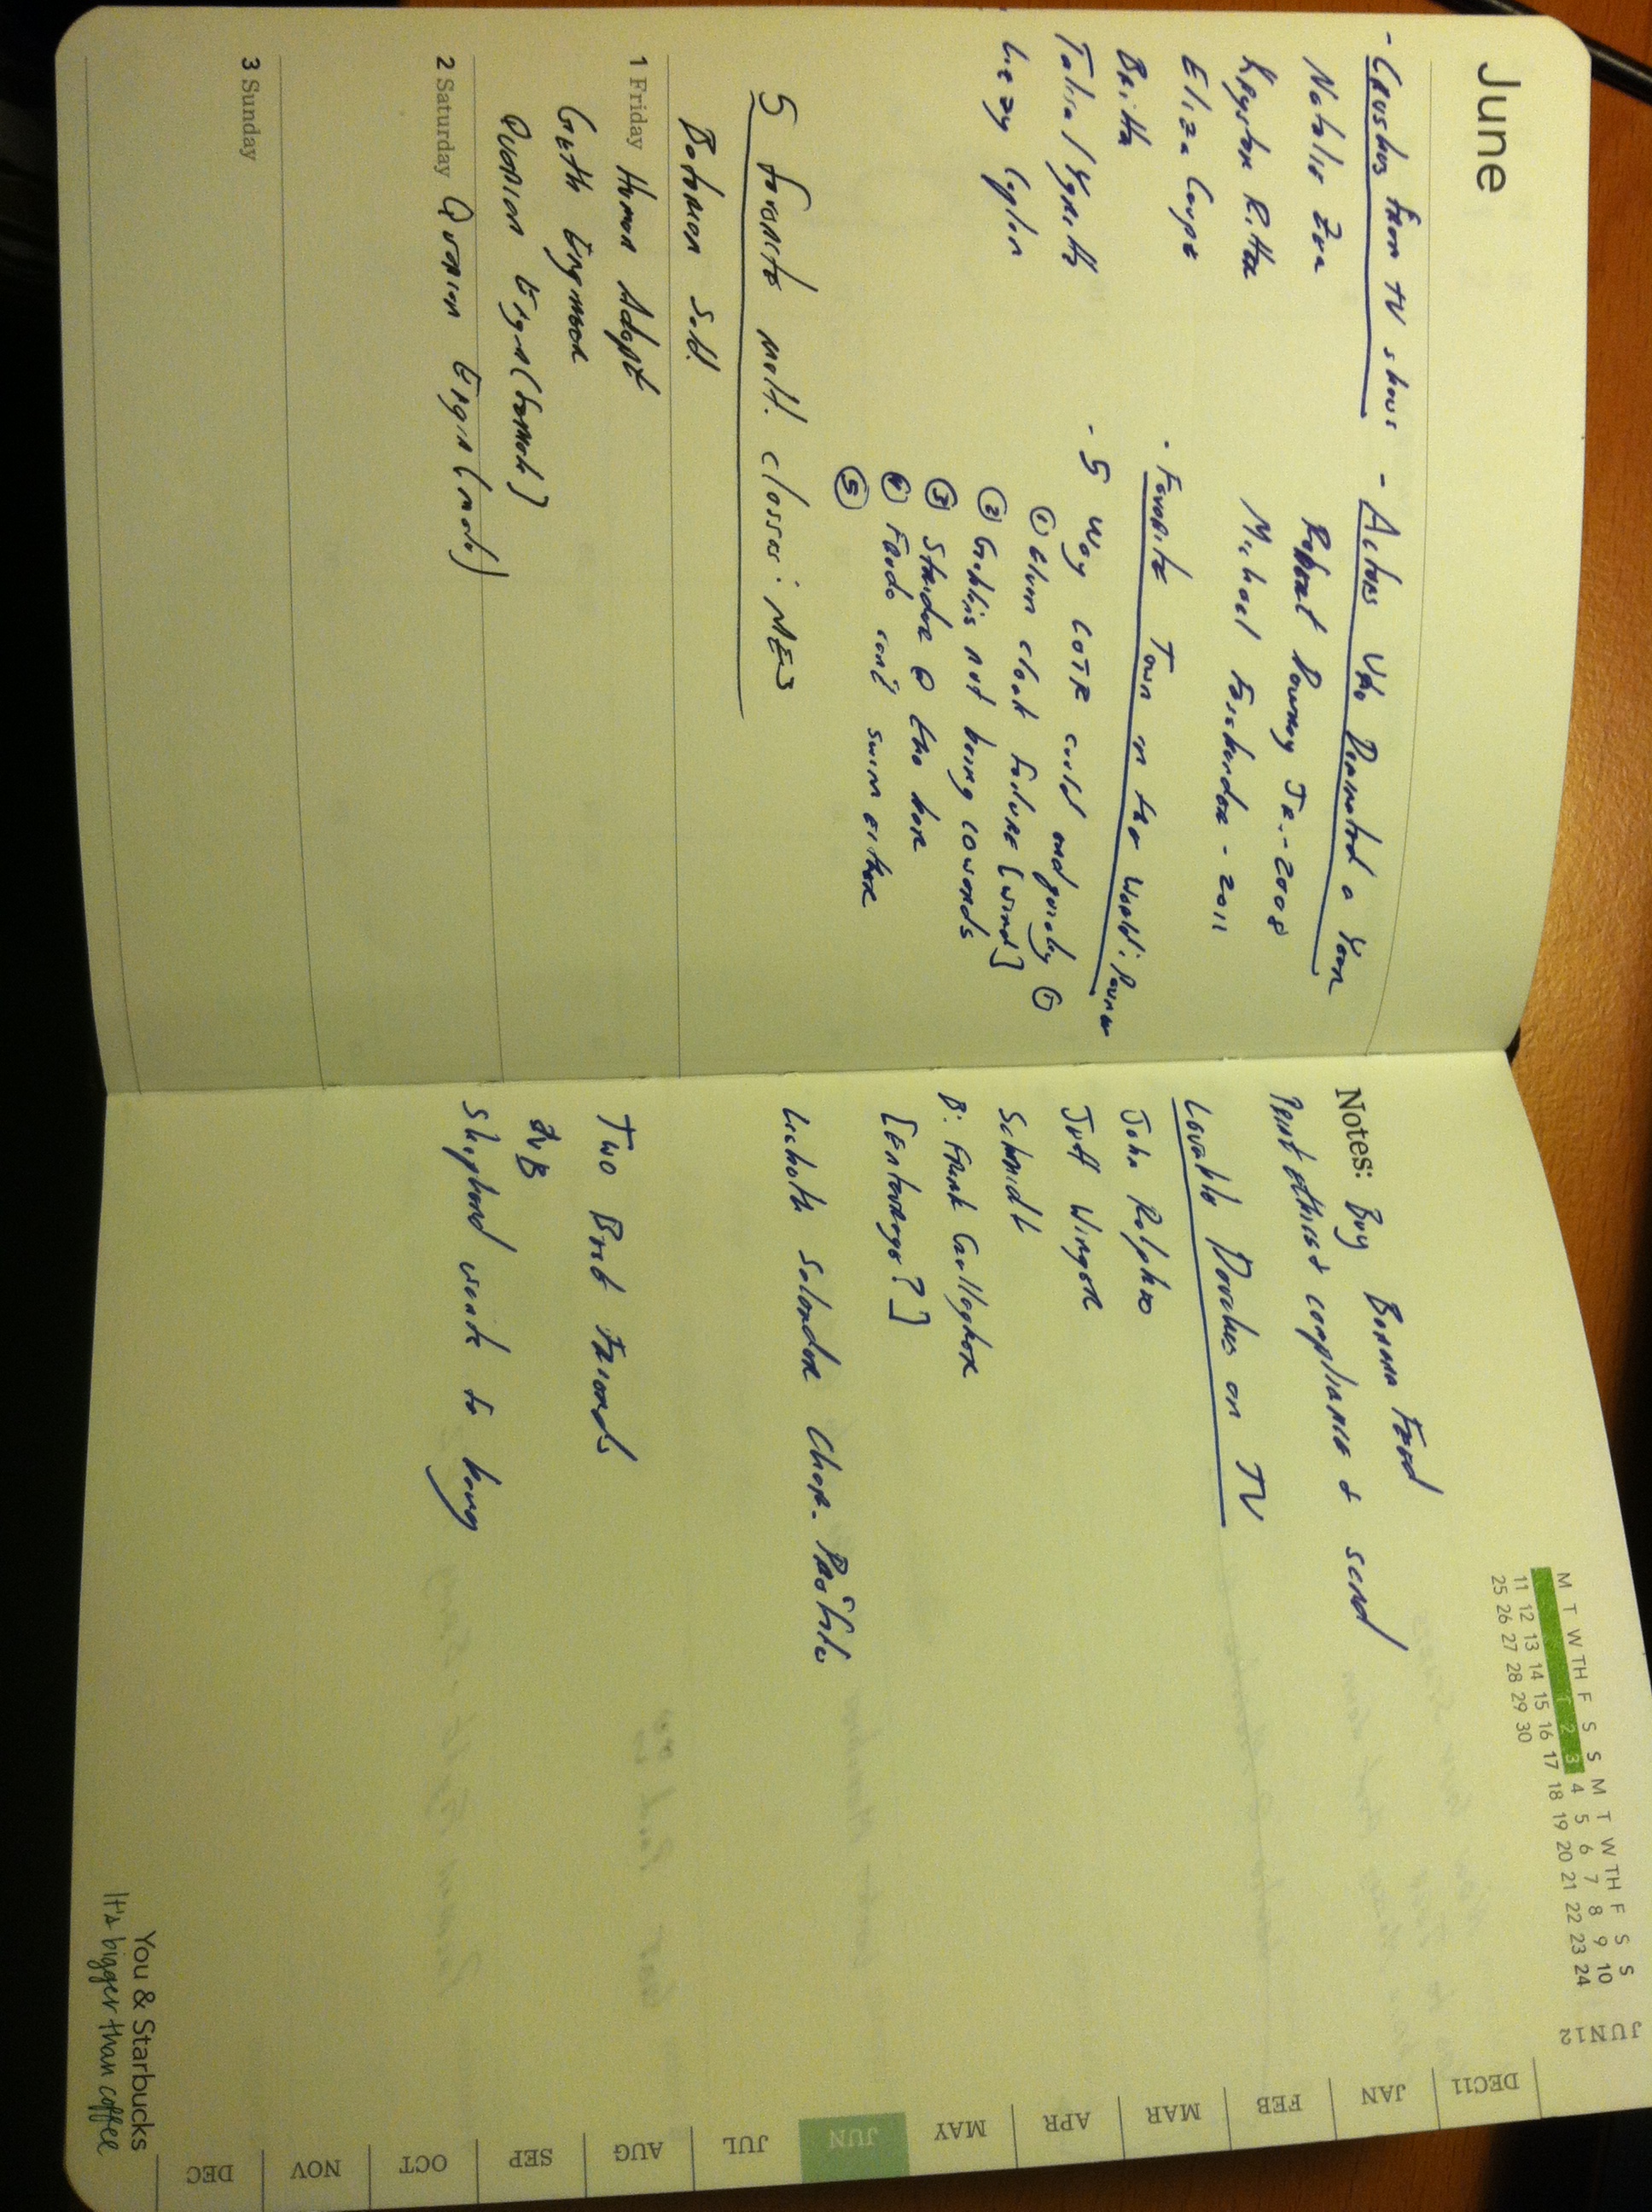 June
- Crushes from TV shows
Natalie Zea
Krysten Ritter
Eliza Coupe
Britta
Talisa / Ygritte
Lizzy Caplan
- Actors Who Dominated a Year
Robert Downey Jr. - 2008
Michael Fassbender - 2011
- Favorite Town in the World:
- 5 Way LOTR could end quickly
① Elven cloak failure [wind]
② Goblins not being cowards
③ Strider @ the bar
④ Frodo can't swim either
⑤
5 favorite mult. classes: ME3
Batarian Sold.
1 Friday Human Adept
Geth Engineer
Quarian Engin (female)
2 Saturday Quarian Engin (male)
3 Sunday
Notes: Buy Banana Food
Print ethics compliance & send
Lovable Douches on TV
John Ralphio
Jeff Winger
Schmidt
B: Frank Gallagher
[Entourage?]
Lisbeth Salander Char. Profile
Two Best Friends
AvB
Shepherd wants to bang
M T W TH F S S M T W TH F S S
1 2 3 4 5 6 7 8 9 10
11 12 13 14 15 16 17 18 19 20 21 22 23 24
25 26 27 28 29 30
JUN12
DEC11
JAN
FEB
MAR
APR
MAY
JUN
JUL
AUG
SEP
OCT
NOV
DEC
You & Starbucks
It's bigger than coffee